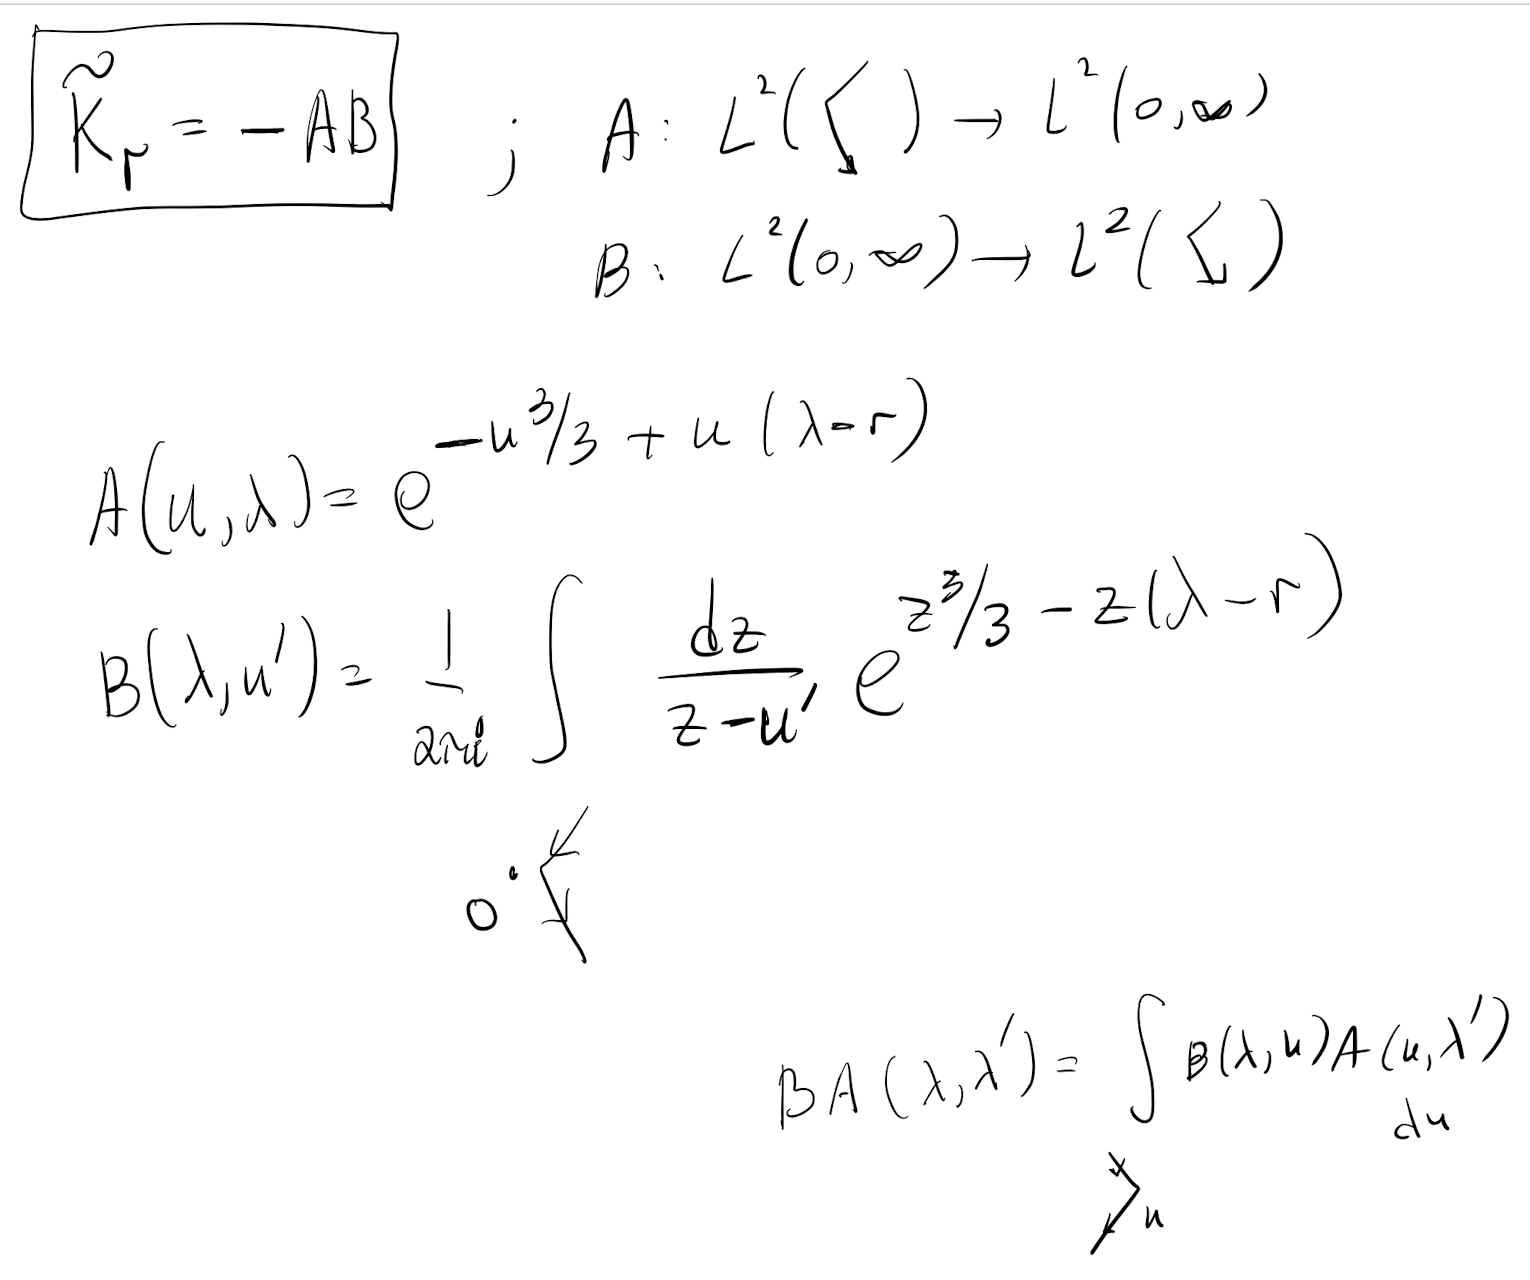 K̃ᵣ = −AB ; A: L²(<) → L²(0,∞)
B: L²(0,∞) → L²(<)
A(u,λ) = e^{−u³/3 + u(λ−r)}
B(λ,u') = 1/2πi ∫ dz/(z−u') e^{z³/3 − z(λ−r)}
0
BA(λ,λ') = ∫ B(λ,u)A(u,λ') du
u